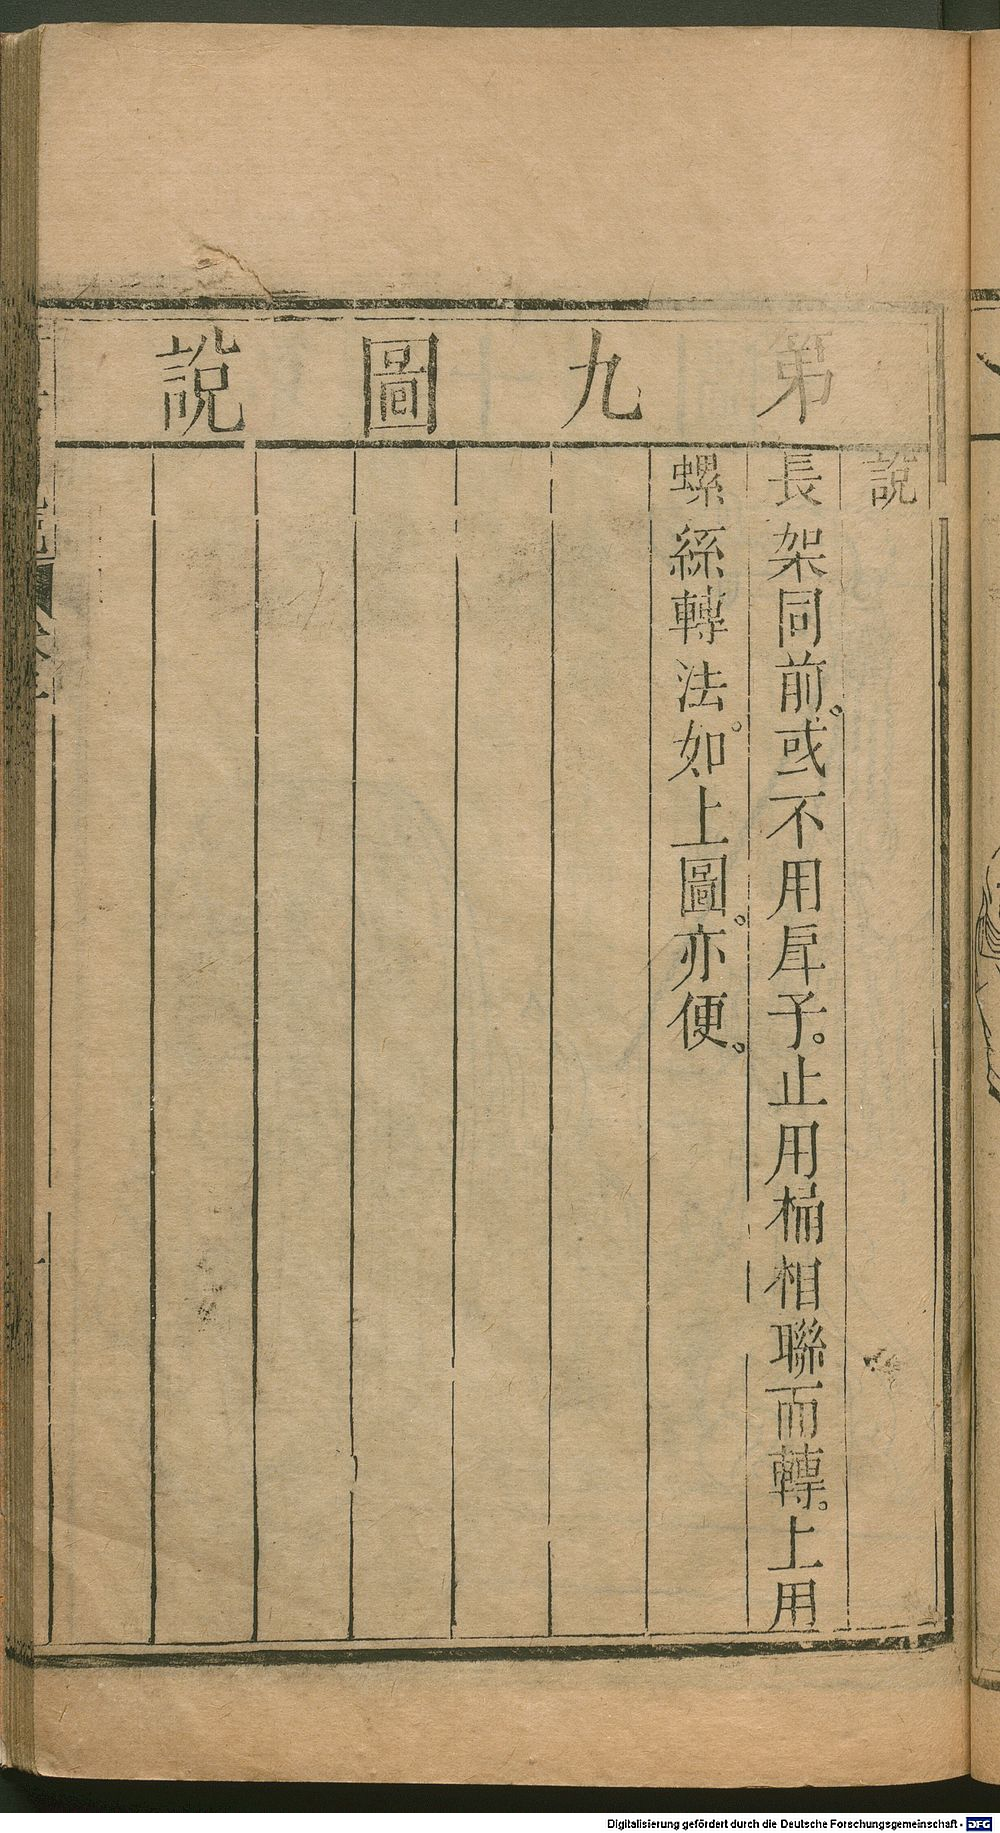 第九圖說
說
長架同前。或不用戽子。止用桶相聯而轉。上用
螺絲轉法。如上圖。亦便。
Digitalisierung gefördert durch die Deutsche Forschungsgemeinschaft - DFG